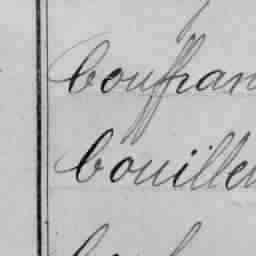 Bouffran
Bouiller